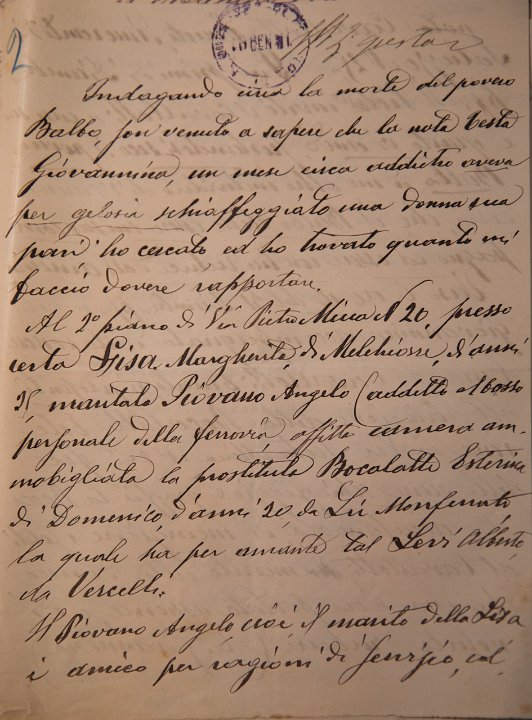 2
Indagando circa la morte del povero
Balbo, son venuto a sapere che la nota Testa
Giovannina, un mese circa addietro aveva
per gelosia schiaffeggiato una donna sua
pari ho cercato ed ho trovato quanto mi
faccio dovere rapportare.
Al 2º piano di Via Pietro Micca Nº 20, presso
certa Lisa Margherita, di Melchiorre, d'anni
maritata Piovano Angelo (addetto al basso
personale della ferrovia, affitta camera am-
mobigliata la prostituta Bocalatte Esterina
di Domenico, d'anni 20 da Lu Monferrato
la quale ha per amante tal Levi Alberto,
da Vercelli.
Il Piovano Angelo, cioè il marito della Lisa
è amico per ragioni di servizio, col